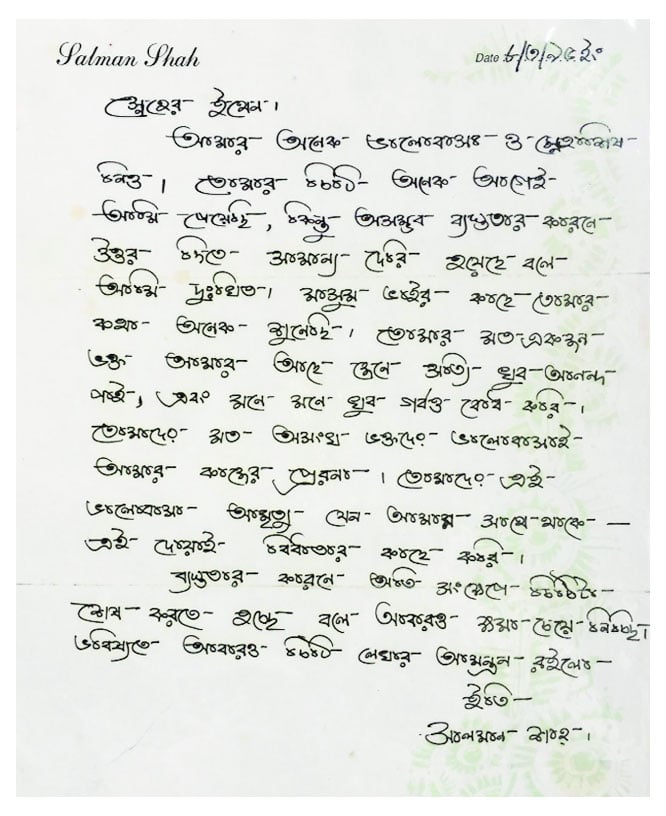 Salman Shah
Date ৮/৩/৯৫ ইং
স্নেহের ইমেন।
আমার অনেক ভালোবাসা ও স্নেহাশিষ
নিও। তোমার চিঠি অনেক আগেই
আমি পেয়েছি, কিন্তু অসম্ভব ব্যস্ততার কারনে
উত্তর দিতে সামান্য দেরি হয়েছে বলে
আমি দুঃখিত। মাসুম ভাইর কাছে তোমার
কথা অনেক শুনেছি। তোমার মত একজন
ভক্ত আমার আছে জেনে সত্যি খুব আনন্দ
পাই, এবং মনে মনে খুব গর্বও বোধ করি।
তোমাদের মত অসংখ্য ভক্তদের ভালোবাসাই
আমার কাজের প্রেরনা। তোমাদের এই
ভালোবাসা আমৃত্যু যেন আমার সাথে থাকে —
এই দোয়াই বিধাতার কাছে করি।
ব্যস্ততার কারনে অতি সংক্ষেপে চিঠিটা
শেষ করতে হচ্ছে বলে আবারও ক্ষমা চেয়ে নিচ্ছি।
ভবিষ্যতে আবারও চিঠি লেখার আমন্ত্রন রইলো
ইতি —
সালমান শাহ।